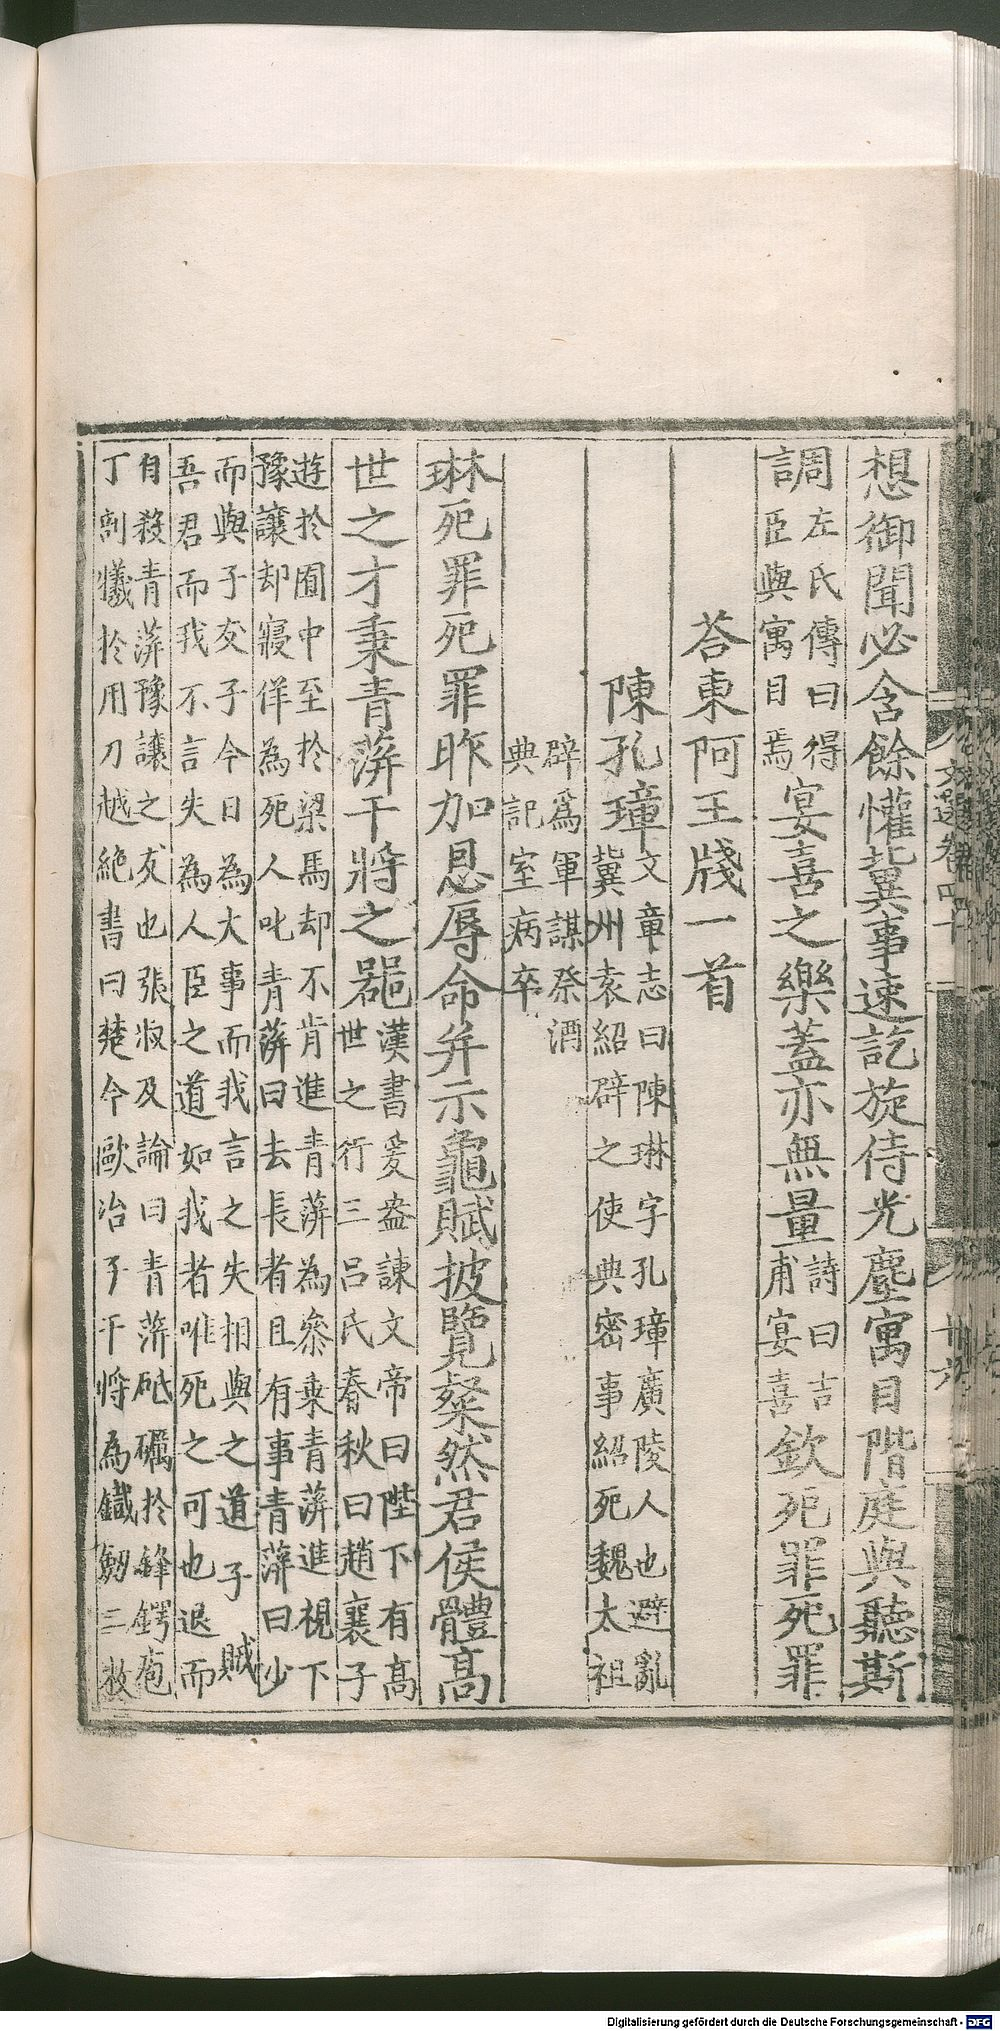 想御聞必含餘懽冀事速訖旋侍光塵寓目階庭與聽斯
調左氏傳曰得
詞臣與寓目焉宴喜之樂蓋亦無量詩曰吉
甫宴喜欽死罪死罪
荅東阿王牋一首
陳孔璋文章志曰陳琳字孔璋廣陵人也避亂
冀州袁紹辟之使典密事紹死魏太祖
辟為軍謀祭酒
典記室病卒
琳死罪死罪昨加恩辱命并示龜賦披覽粲然君侯體高
世之才秉青蓱干將之器漢書爰盎諫文帝曰陛下有高
世之行三呂氏春秋曰趙襄子
遊於囿中至於梁馬却不肯進青蓱為參乗青蓱進視下
豫讓却寢佯為死人叱青蓱曰去長者且有事青蓱曰少
而與子友子今日為大事而我言之失相與之道子賊
吾君而我不言失為人臣之道如我者唯死之可也退而
自殺青蓱豫讓之友也張叔及論曰青蓱砥礪於鋒鍔庖
丁剖犧於用刀越絶書曰楚令歐冶子干將為鐵劒三枚
文選卷四十
廿六
Digitalisierung gefördert durch die Deutsche Forschungsgemeinschaft - DFG